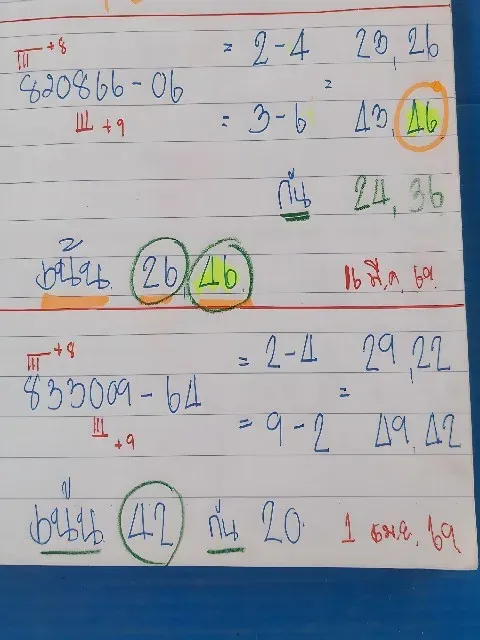 +8 = 2-4 23, 26
820866-06 =
+9 = 3-6 43, 46
กัน 24, 36
เน้น 26, 46 16 มี.ค. 69
+8 = 2-4 29, 22
833009-64 =
+9 = 9-2 49, 42
เน้น 42 กัน 20 1 เมย. 69